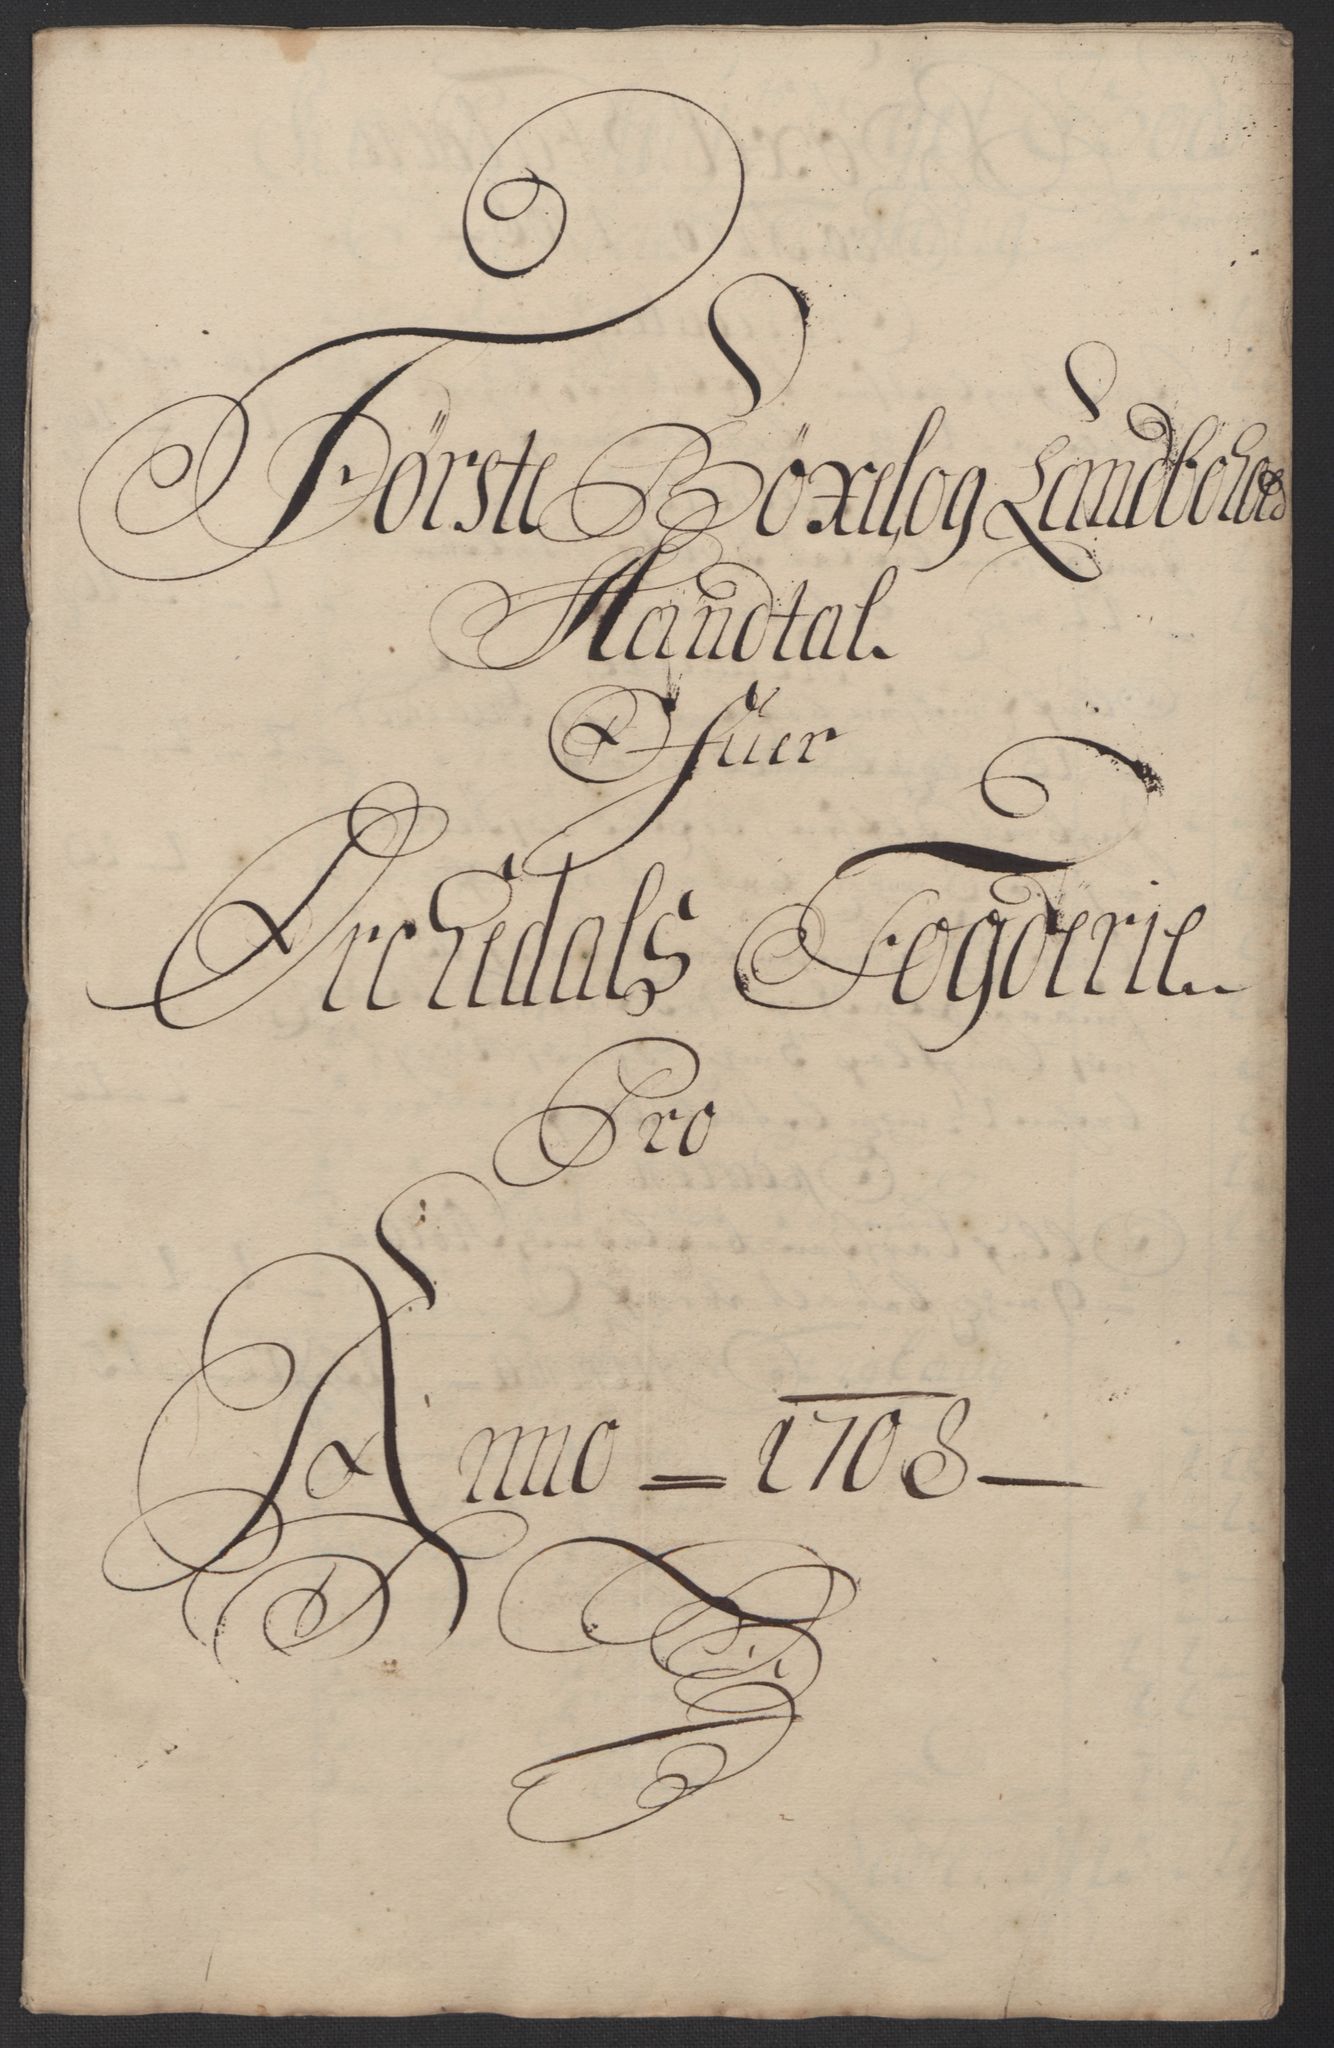 Förste Böxel, og Landbohold
Mandtal.
Ofuer
Orchedals Fogderie.
Pro
Anno = 1708 —